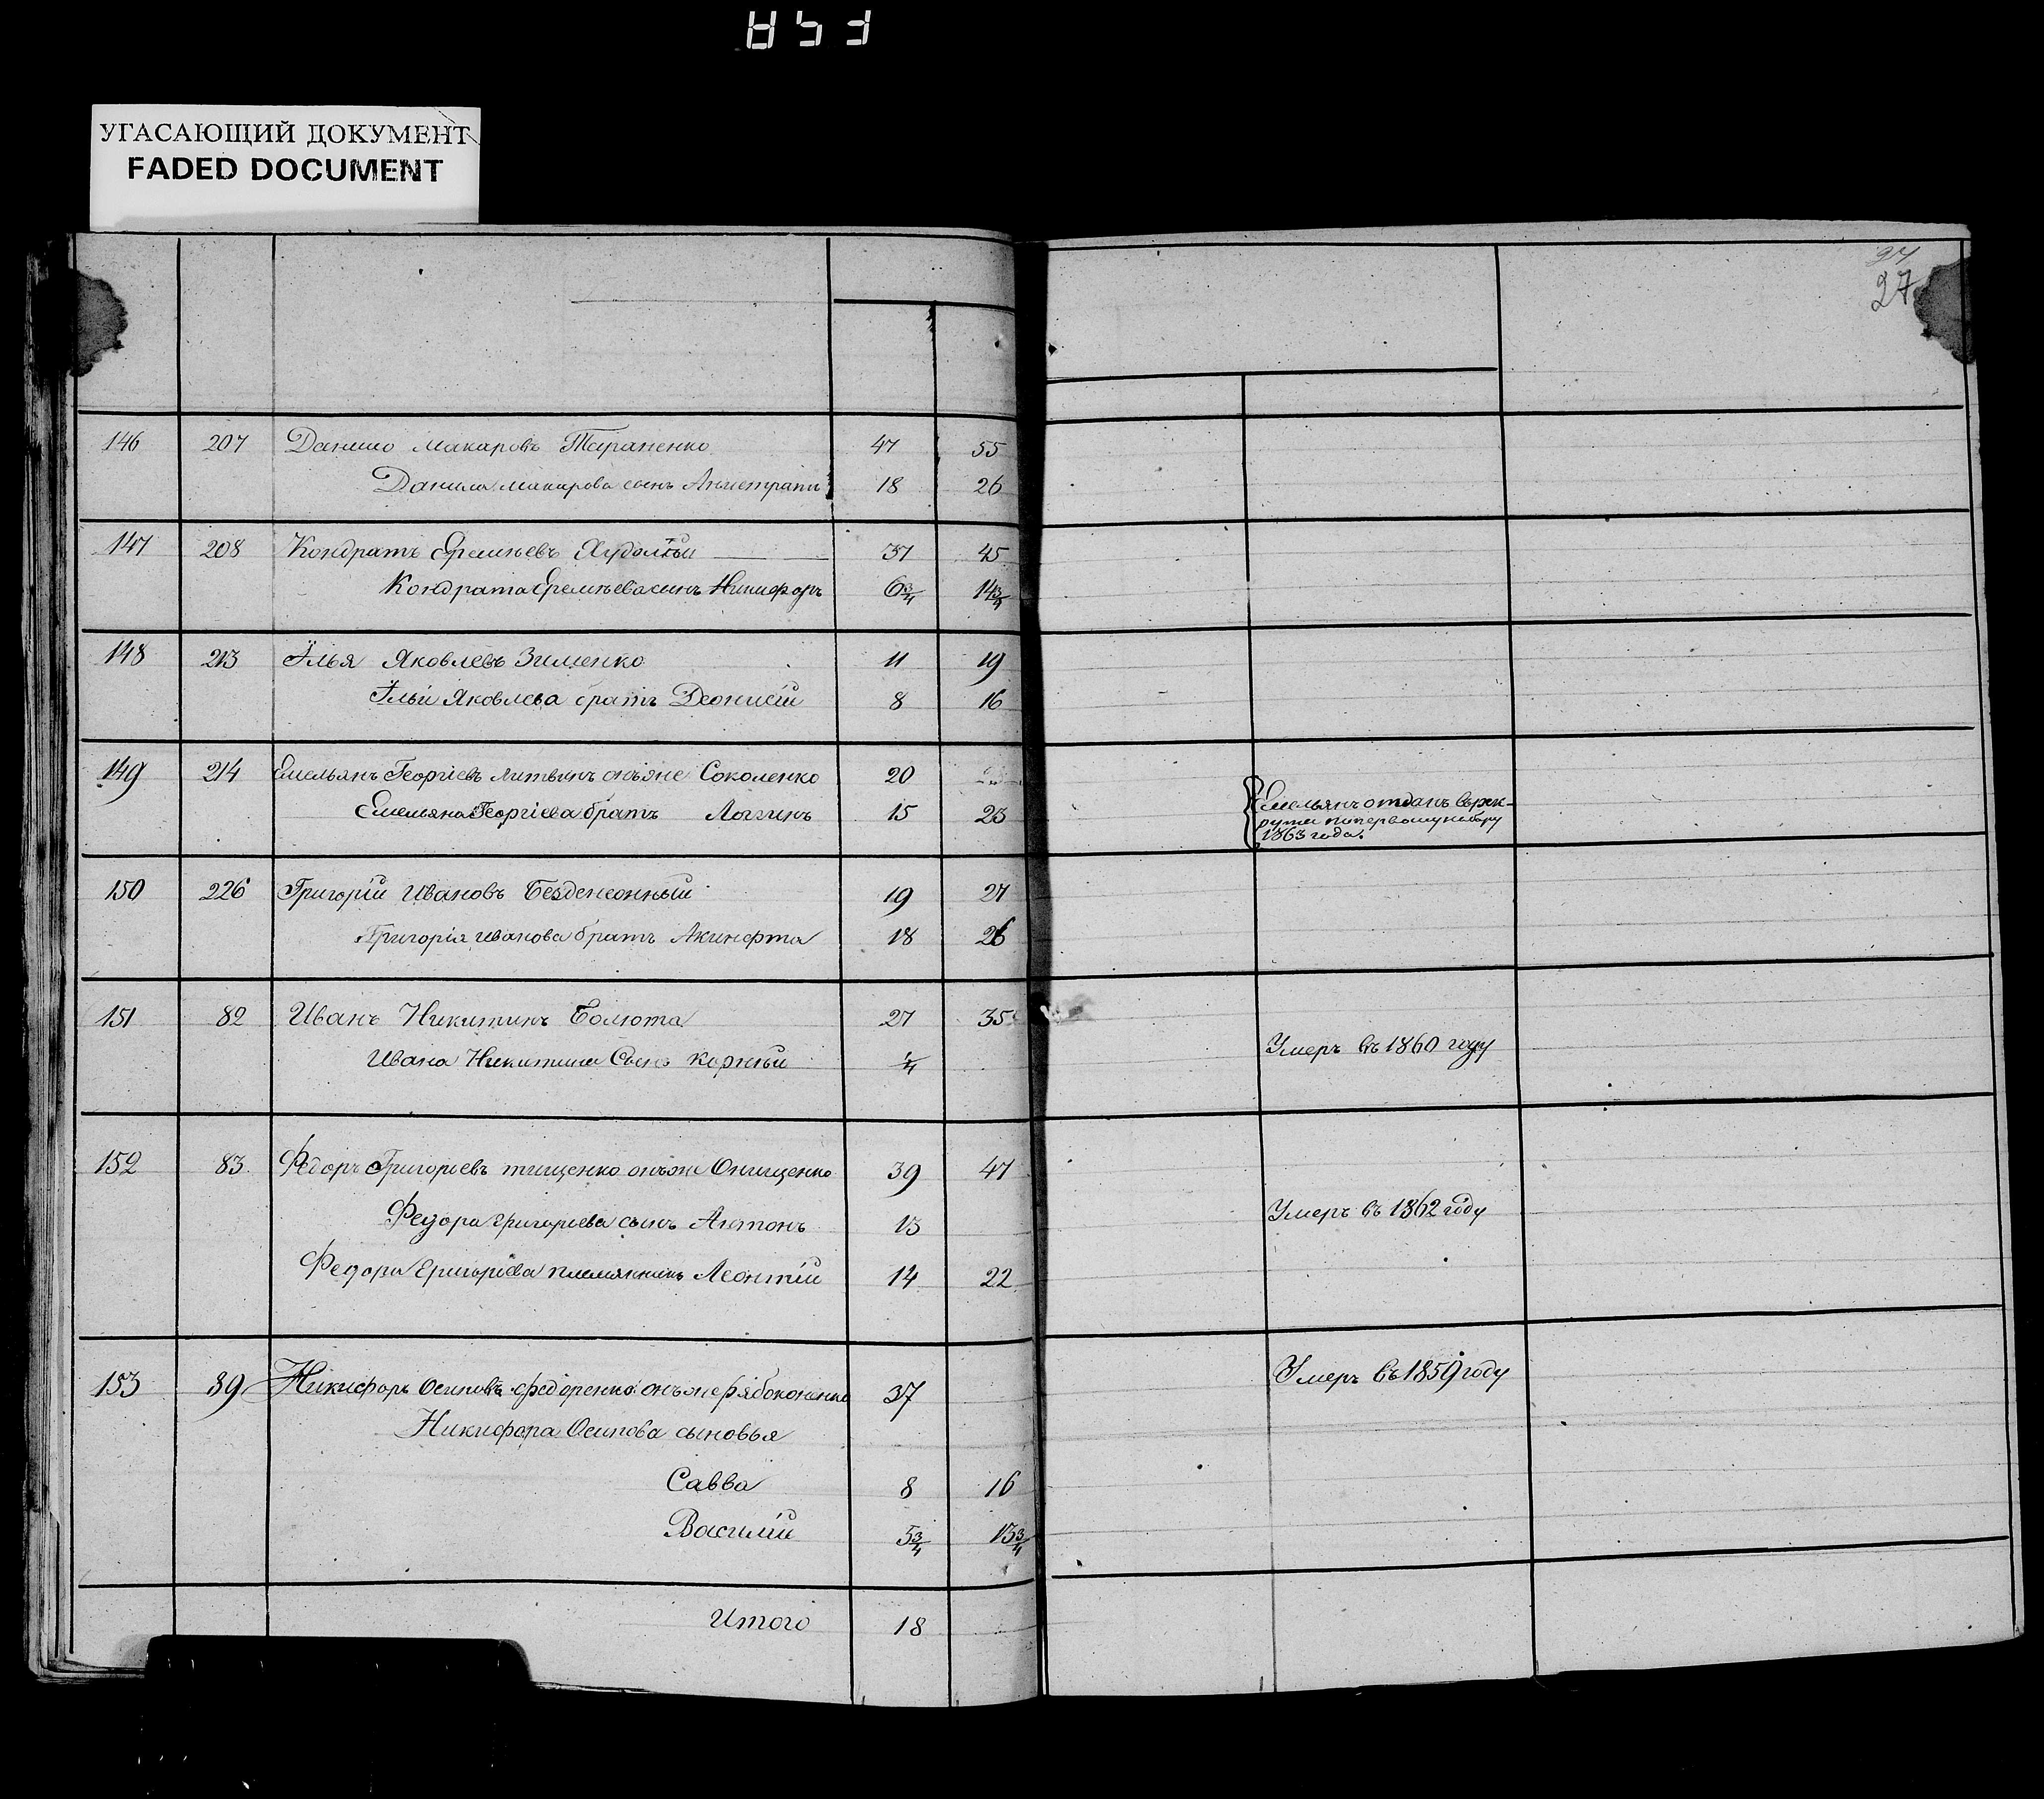 УГАСАЮЩИЙ ДОКУМЕНТ
FADED DOCUMENT
27
146 207 Данило Макаровъ Тараненко 47 55
Данила Макарова сынъ 18 26
147 208 Кондратъ Еремѣевъ 37 45
Кондрата Еремѣева сынъ Никифоръ 6 3/4 14 3/4
148 213 Илья Яковлевъ Зименко 11 19
Ильи Яковлева братъ Деонисій 8 16
149 214 Емельянъ Георгіевъ Литвинъ онъ же Соколенко 20
Емельяна Георгіева братъ Логгинъ 15 23
Емельянъ отданъ въ рек-
руты по первому набору
1863 года.
150 226 Григорій Ивановъ Безденежный 19 27
Григорія Иванова братъ Акинфта 18 26
151 82 Иванъ Никитинъ Болюта 27 35
Ивана Никитина Сынъ Корній 1/4 Умеръ въ 1860 году
152 83 Федоръ Григорьевъ тищенко онъ же Онищенко 39 47
Федора Григорьева сынъ Антонъ 13 Умеръ въ 1862 году
Федора Григорьева племянникъ Леонтій 14 22
153 89 Никифоръ Осиповъ Федоренко онъ же Рябоконенко 37 Умеръ въ 1859 году
Никифора Осипова сыновья
Савва 8 16
Василій 5 3/4 13 3/4
Итого 18